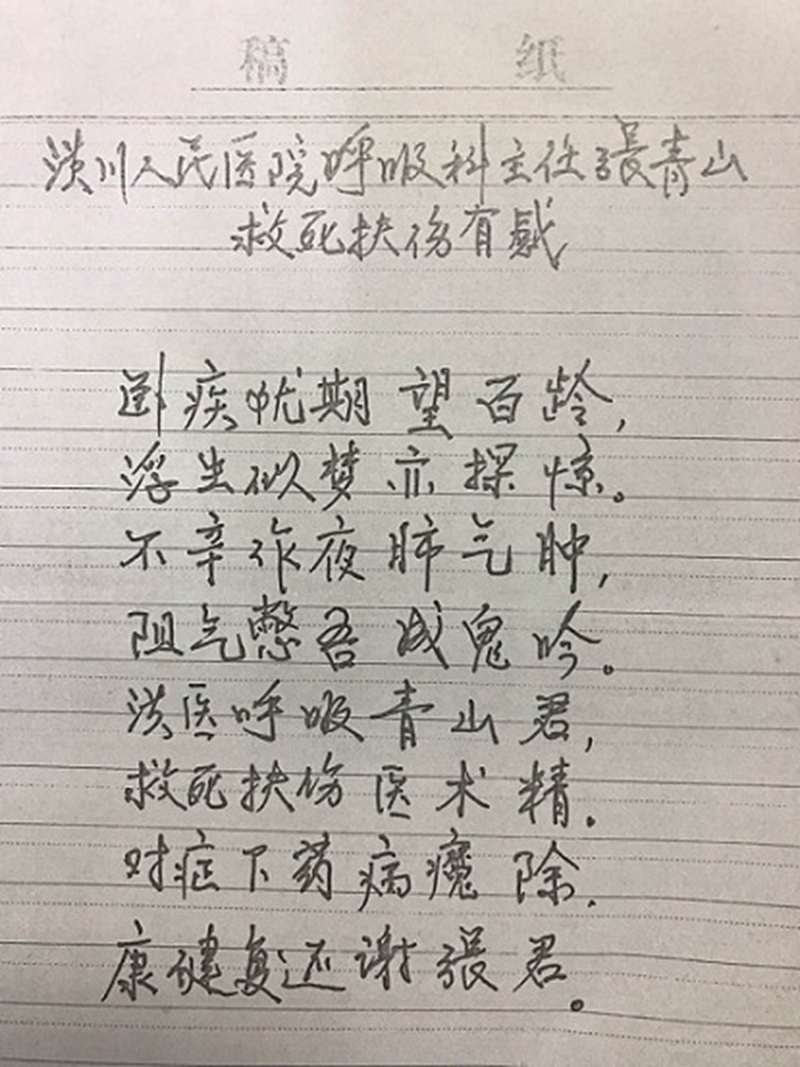 稿 纸
潢川人民医院呼吸科主任張青山
救死扶伤有感
卧疾忧期望百龄,
浮生似梦亦探惊。
不辛昨夜肺气肿,
阻气憋吾成鬼吟。
潢医呼吸青山君,
救死扶伤医术精.
对症下药病魔除.
康健复还谢張君。